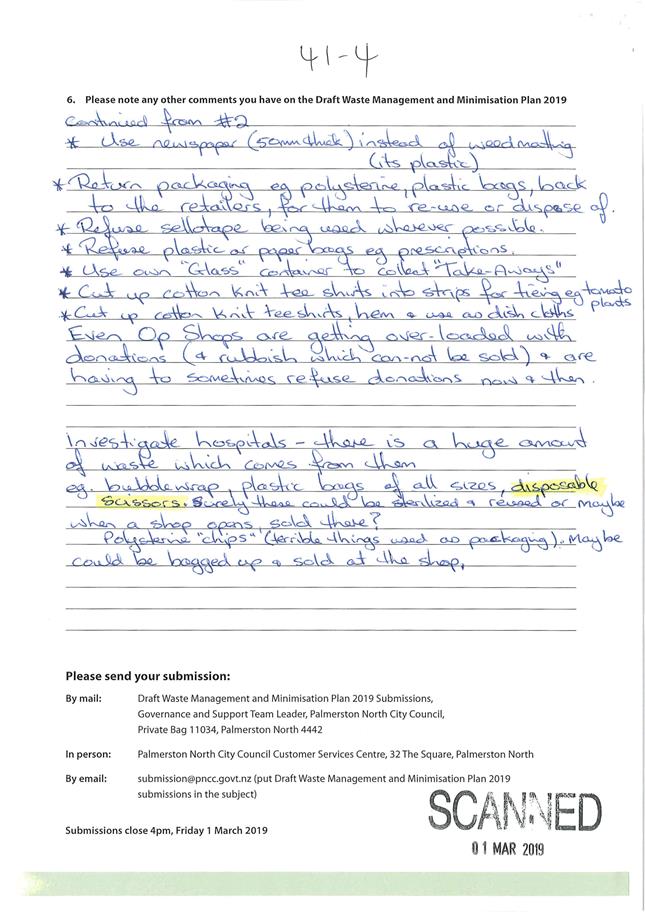 41-4
6. Please note any other comments you have on the Draft Waste Management and Minimisation Plan 2019
Continued from #2
* Use newspaper (50mm thick) instead of weedmatting
(its plastic)
* Return packaging eg polysterine, plastic bags, back
to the retailers, for them to re-use or dispose of.
* Refuse sellotape being used wherever possible.
* Refuse plastic or paper bags eg prescriptions.
* Use own "Glass" container to collect "Take-Aways"
* Cut up cotton knit tee shirts into strips for tieing eg tomato
plants
* Cut up cotton knit teeshirts, hem & use as dish cloths
Even Op Shops are getting over-loaded with
donations (& rubbish which can-not be sold) & are
having to sometimes refuse donations now & then.
Investigate hospitals - there is a huge amount
of waste which comes from them
eg. bubblewrap, plastic bags of all sizes, disposable
scissors. Surely these could be sterilized & reused or maybe
when a shop opens, sold there?
Polysterine "chips" (terrible things used as packaging). Maybe
could be bagged up & sold at the shop.
Please send your submission:
By mail: Draft Waste Management and Minimisation Plan 2019 Submissions,
Governance and Support Team Leader, Palmerston North City Council,
Private Bag 11034, Palmerston North 4442
In person: Palmerston North City Council Customer Services Centre, 32 The Square, Palmerston North
By email: submission@pncc.govt.nz (put Draft Waste Management and Minimisation Plan 2019
submissions in the subject)
Submissions close 4pm, Friday 1 March 2019
SCANNED
01 MAR 2019